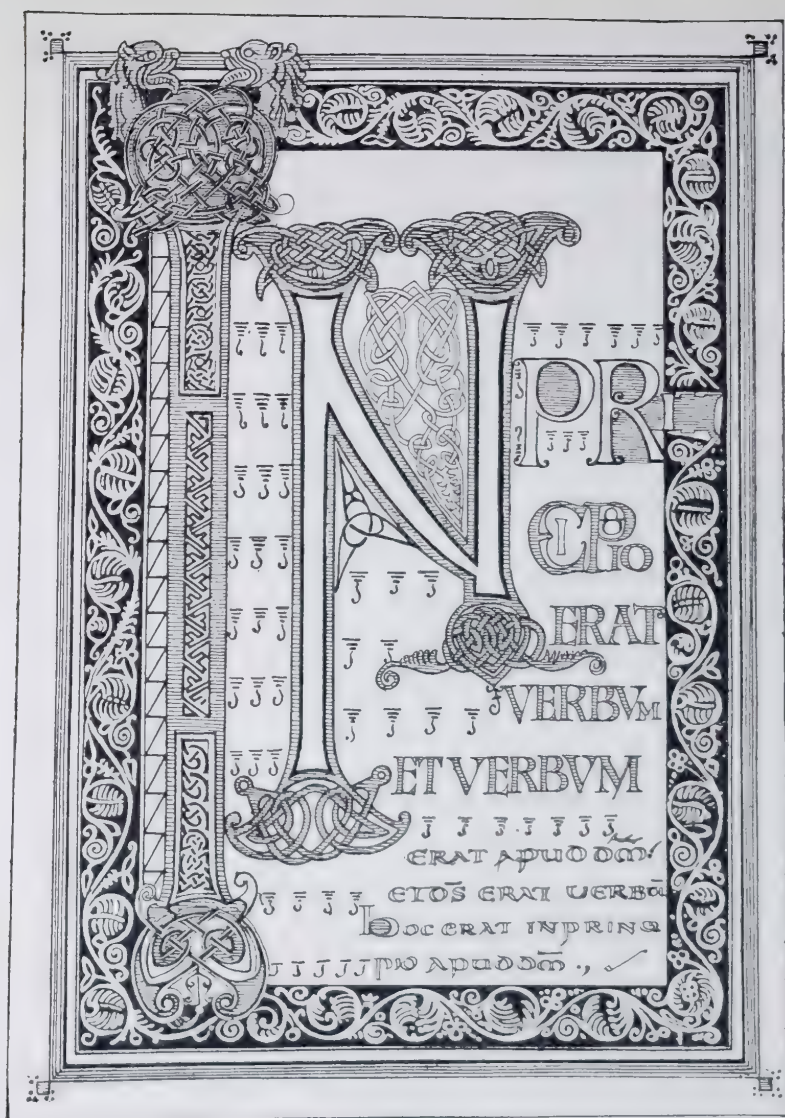 IN PR
CIPIO
ERAT
VERBVM
ET VERBVM
ERAT APUD DM̄
ET DS̄ ERAT UERBŪ
hOC ERAT INPRINCI
PIO APUD DM̄ .,